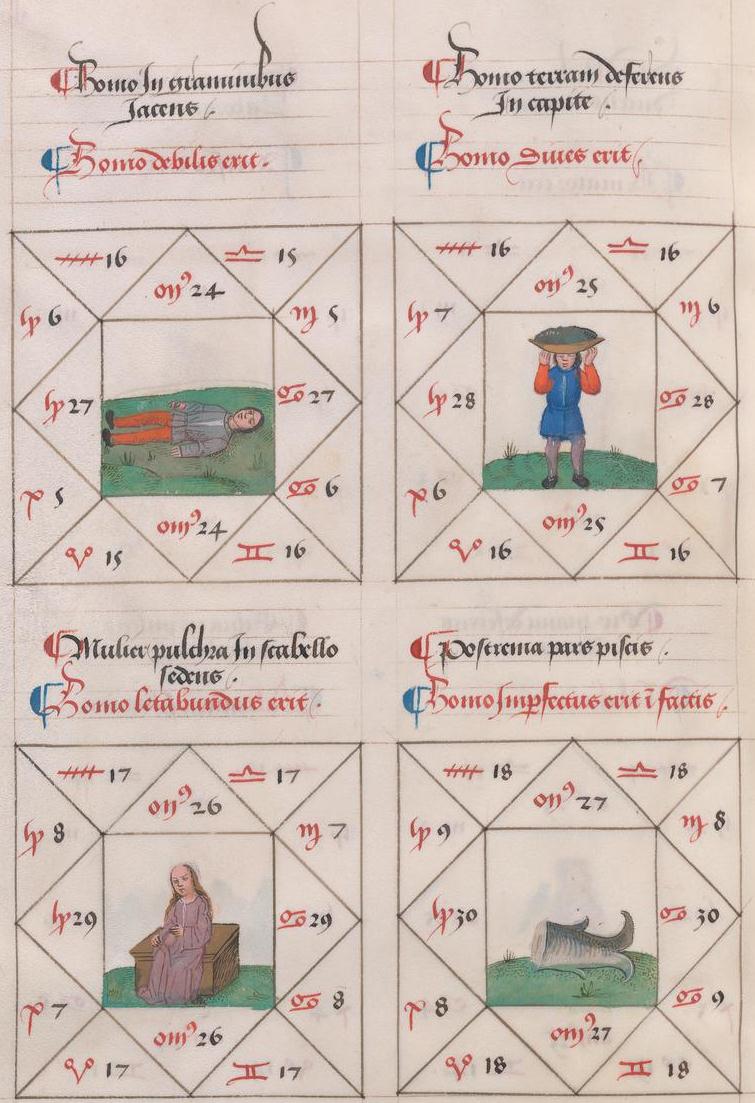 ¶ Homo In graminibus
Jacens .
¶ Homo debilis erit .
♒ 16
♎ 15
on⁹ 24
♍ 6
♏ 5
♍ 27
♋ 27
♋ 6
5
on⁹ 24
♈ 15
♊ 16
¶ Homo terram deferens
In capite .
¶ Homo Dives erit
♒ 16
♎ 16
on⁹ 25
♍ 7
♏ 6
♍ 28
♋ 28
♋ 7
6
om⁹ 25
♈ 16
♊ 16
¶ Mulier pulchra In scabello
sedens .
¶ Homo letabundus erit .
♒ 17
♎ 17
on⁹ 26
♍ 8
♏ 7
♍ 29
♋ 29
♋ 8
7
om⁹ 26
♈ 17
♊ 17
¶ Postrema pars piscis .
¶ Homo Imp̱fectus erit ī factis .
♒ 18
♎ 18
on⁹ 27
♍ 9
♏ 8
♍ 30
♋ 30
♋ 9
8
om⁹ 27
♈ 18
♊ 18